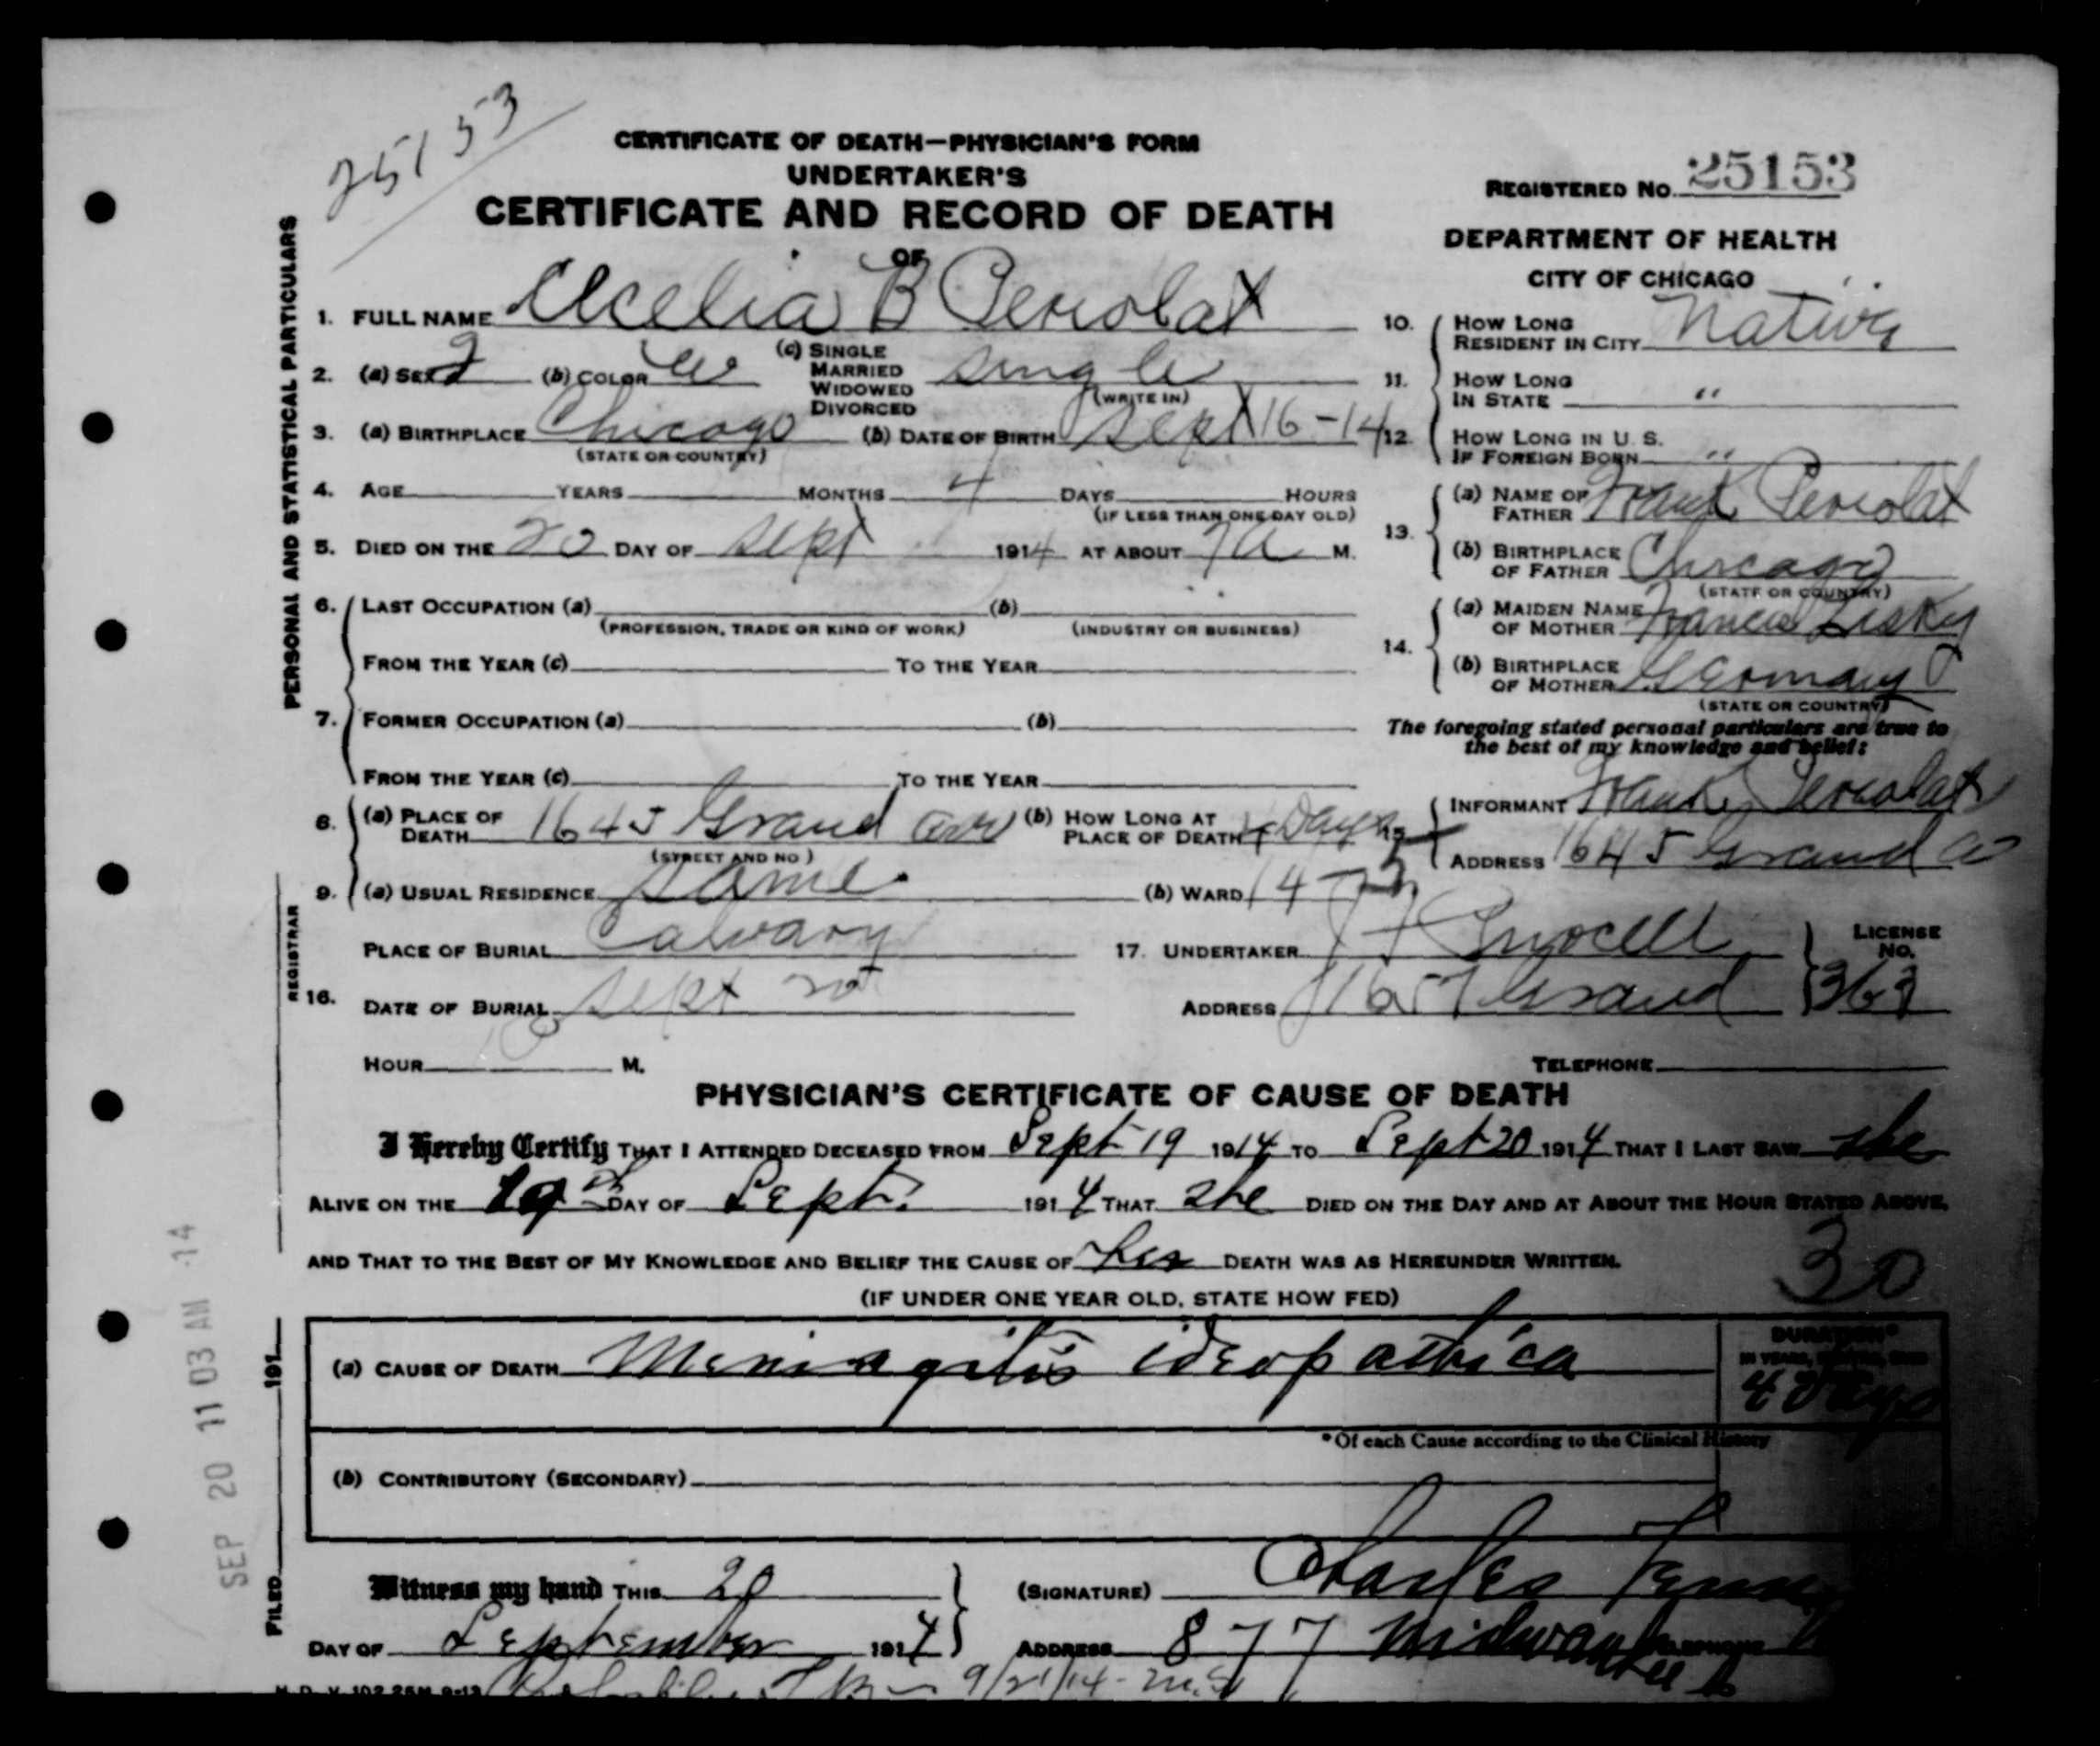 25153
CERTIFICATE OF DEATH—PHYSICIAN'S FORM
UNDERTAKER'S
CERTIFICATE AND RECORD OF DEATH
OF
REGISTERED No. 25153
DEPARTMENT OF HEALTH
CITY OF CHICAGO
PERSONAL AND STATISTICAL PARTICULARS
1. FULL NAME Cecelia B Periolat
2. (a) SEX (b) COLOR W (c) SINGLE MARRIED WIDOWED DIVORCED single
(WRITE IN)
3. (a) BIRTHPLACE Chicago (b) DATE OF BIRTH Sept 16-14
(STATE OR COUNTRY)
4. AGE YEARS MONTHS 4 DAYS HOURS
(IF LESS THAN ONE DAY OLD)
5. DIED ON THE 20 DAY OF Sept 1914 AT ABOUT 7 a M.
6. LAST OCCUPATION (a) (b)
(PROFESSION, TRADE OR KIND OF WORK) (INDUSTRY OR BUSINESS)
FROM THE YEAR (c) TO THE YEAR
7. FORMER OCCUPATION (a) (b)
FROM THE YEAR (c) TO THE YEAR
8. (a) PLACE OF DEATH 1645 Grand ave (b) HOW LONG AT PLACE OF DEATH 4 Days
(STREET AND NO.)
9. (a) USUAL RESIDENCE Same (b) WARD 14
10. HOW LONG RESIDENT IN CITY Native
11. HOW LONG IN STATE "
12. HOW LONG IN U. S. IF FOREIGN BORN "
13. (a) NAME OF FATHER Frank Periolat
(b) BIRTHPLACE OF FATHER Chicago
(STATE OR COUNTRY)
14. (a) MAIDEN NAME OF MOTHER Frances Lisky
(b) BIRTHPLACE OF MOTHER Germany
(STATE OR COUNTRY)
The foregoing stated personal particulars are true to
the best of my knowledge and belief:
15. INFORMANT Frank Periolat
ADDRESS 1645 Grand a
REGISTRAR
16. PLACE OF BURIAL Calvary
DATE OF BURIAL Sept 20
HOUR M.
17. UNDERTAKER
LICENSE No.
ADDRESS 1657 Grand
TELEPHONE
PHYSICIAN'S CERTIFICATE OF CAUSE OF DEATH
I Hereby Certify THAT I ATTENDED DECEASED FROM Sept 19 1914 TO Sept 20 1914 THAT I LAST SAW she
ALIVE ON THE 19th DAY OF Sept. 1914 THAT she DIED ON THE DAY AND AT ABOUT THE HOUR STATED ABOVE,
AND THAT TO THE BEST OF MY KNOWLEDGE AND BELIEF THE CAUSE OF her DEATH WAS AS HEREUNDER WRITTEN.
30
(IF UNDER ONE YEAR OLD, STATE HOW FED)
(a) CAUSE OF DEATH Meningitis ideopathica
DURATION*
4 Days
*Of each Cause according to the Clinical History
(b) CONTRIBUTORY (SECONDARY)
FILED 191
SEP 20 11 03 AM '14
Witness my hand THIS 20
DAY OF September 1914
(SIGNATURE) Charles
ADDRESS 877 Milwaukee
9/21/14